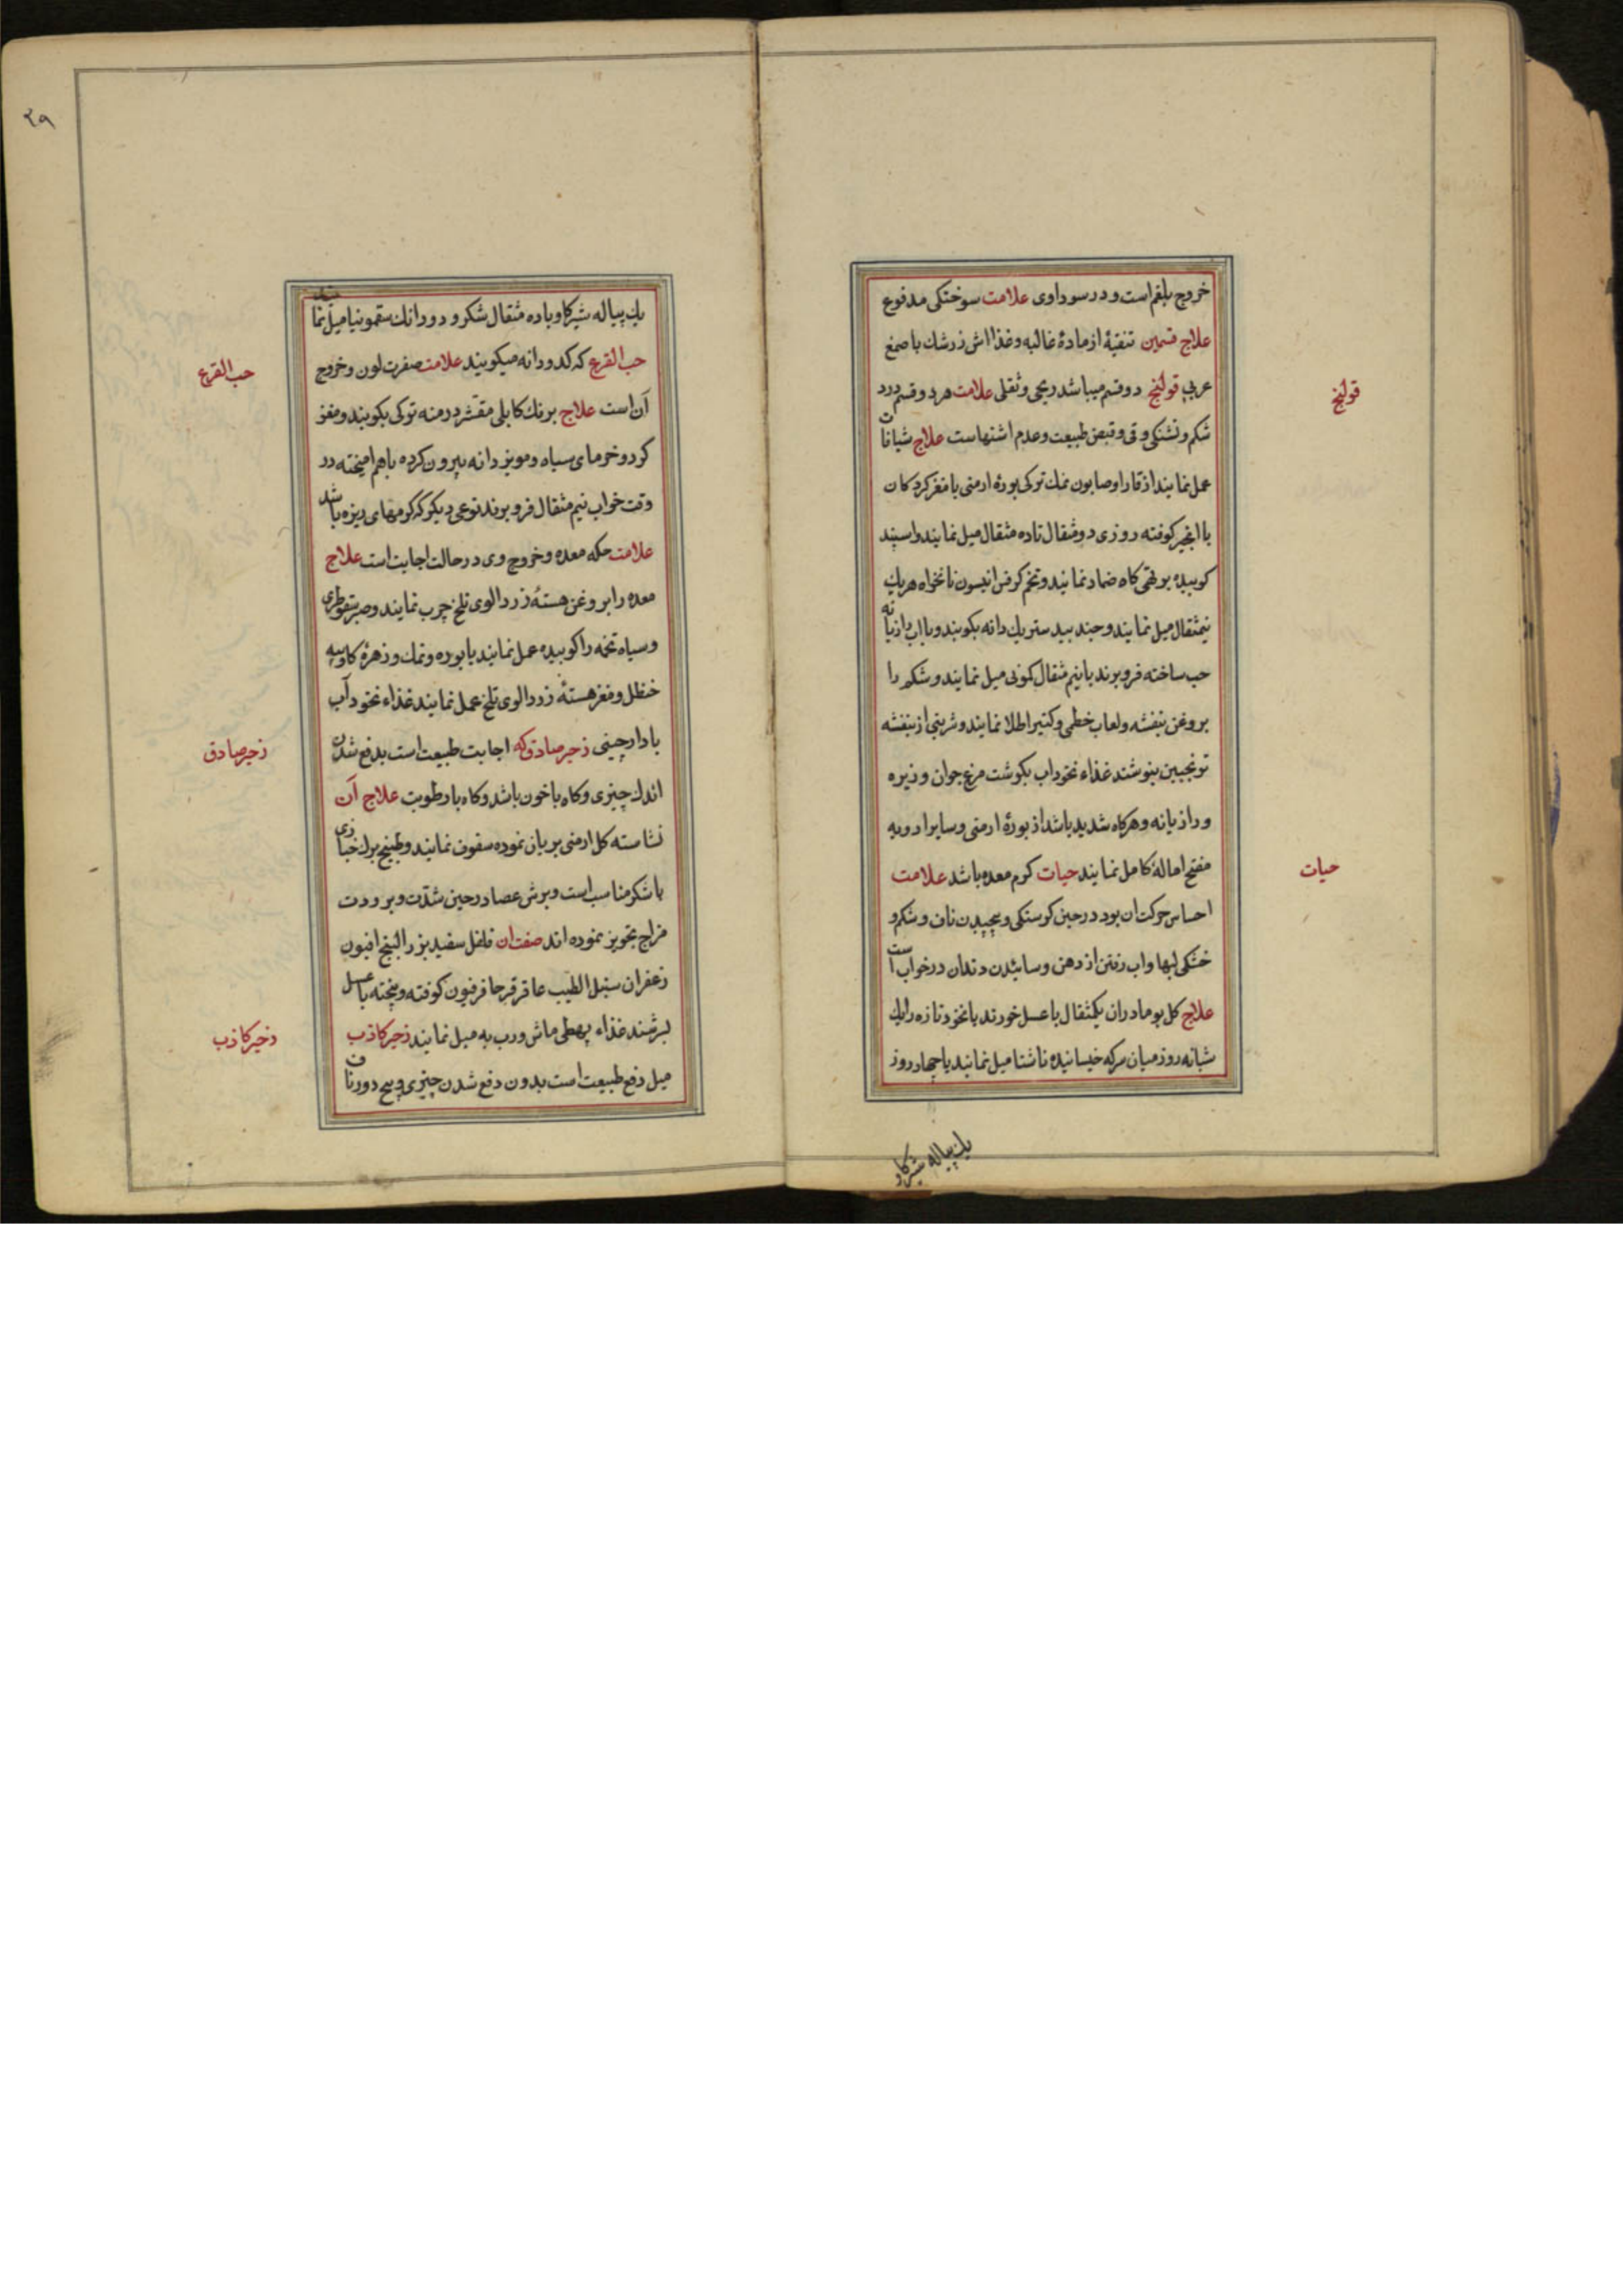 خروج بلغم است و در سوداوی علامت سوختکی مدفوع
علاج قسمین تنقیهٔ از مادهٔ غالبه و غذا اش زرشك با صمغ
عربی قولنج دو قسم میباشد ریحی و ثقلی علامت هر دو قسم درد
شکم و تشنکی و قی و قبض طبیعت و عدم اشتهاست علاج شیافات
عمل نمایند از قارا و صابون نمك ترکی بورهٔ ارمنی یا مغز کردکان
با انجیر کوفته روزی دو مثقال تا ده مثقال میل نمایند و اسپند
کوبیده بر تهی کاه ضماد نمایند و تخم کرفس انیسون نانخواه هریك
نیمثقال میل نمایند و جند بید ستر یك دانه بکوبند و با اب رازیانه
حب ساخته فرو برند با نیم مثقال کمونی میل نمایند و شکم را
بروغن بنفشه و لعاب خطمی و کتیرا طلا نمایند و شربتی از بنفشه
ترنجبین بنوشند غذاء نخوداب بکوشت مرغ جوان و زیره
و رازیانه و هرکاه شدید باشد از بورهٔ ارمنی و سایر ادویه
مفتح امالهٔ کامل نمایند حیات کرم معده باشد علامت
احساس حرکت ان بود در حین کرسنکی و پیچیدن ناف و شکم و
خشکی لبها و اب رفتن از دهن و سائیدن دندان در خواب است
علاج کل بومادران یکمثقال با عسل خورند یا نخود تازه را یك
شبانه روز میان سرکه خیسانیده ناشتا میل نمایند یا چهار روز
یك پیاله شیرکاو
قولنج
حیات
۲۹
یك پیاله شیر کاو با ده مثقال شکر و دو دانك سقمونیا میل نمایند
حب القرع که کدو دانه میکویند علامت صفرت لون و خروج
آن است علاج برنك کابلی مقشر درمنه ترکی بکوبند و مغز
کردو خرمای سیاه و مویز دانه بیرون کرده باهم امیخته در
وقت خواب نیم مثقال فرو برند نوعی دیکر که کرمهای ریزه باشد
علامت حکه معده و خروج وی در حالت اجابت است علاج
معده را بروغن هستهٔ زردالوی تلخ چرب نمایند و صبر سقوطری
و سیاه تخمه را کوبیده عمل نمایند یا بوره و نمك و زهرهٔ کاو
حنظل و مغز هستهٔ زردالوی تلخ عمل نمایند غذاء نخود آب
با دارچینی زحیر صادق که اجابت طبیعت است بدفع شدن
اندك چیزی و کاه با خون باشد و کاه با رطوبت علاج آن
نشاسته کل ارمنی بریان نموده سفوف نمایند و طبیخ برك خبازی
با شکر مناسب است و برش عصا در حین شدّت و برودت
مزاج تجویز نموده اند صفت ان فلفل سفید بزر البنج افیون
زعفران سنبل الطیب عاقرقرحا فرفیون کوفته و بیخته با عسل
بسرشند غذاء پهطی ماش و رب به میل نمایند زحیر کاذب
میل دفع طبیعت است بدون دفع شدن چیزی و پیچ دور ناف
حب القرع
زحیر صادق
زحیر کاذب